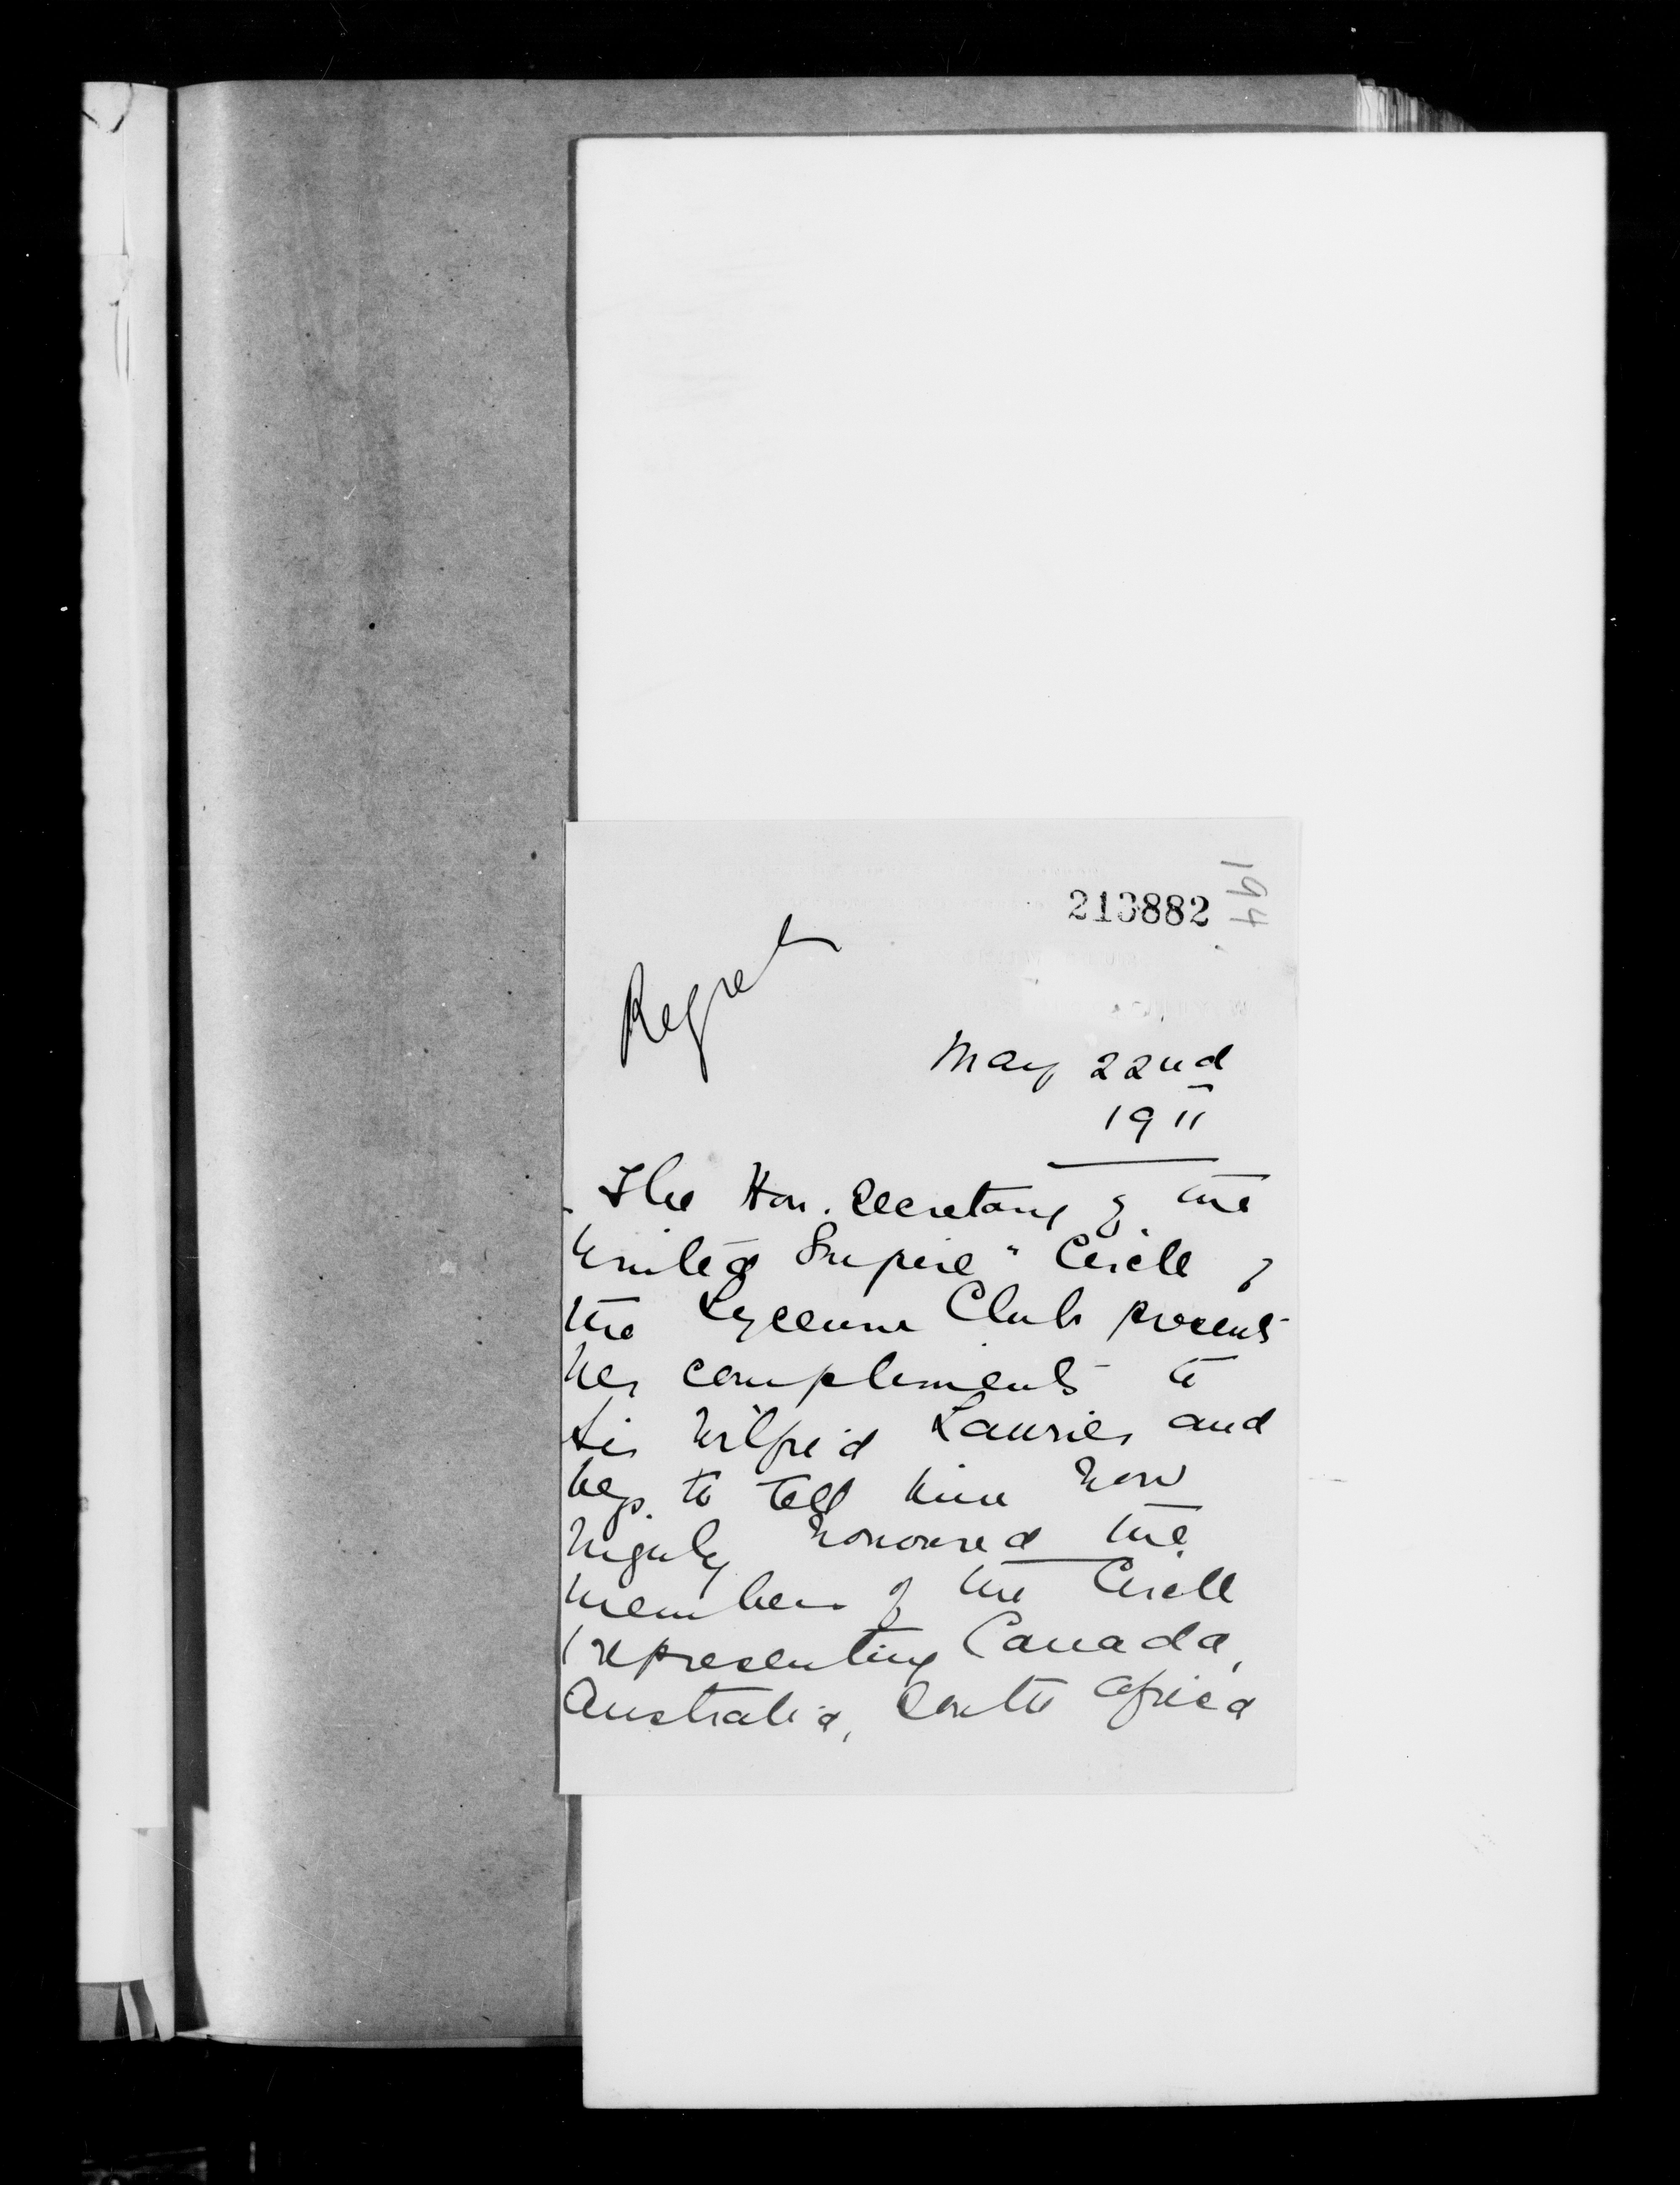 194
213882
Regret
May 22nd
1911
The Hon. Secretary of the
United Empire" Circle of
the Lyceum Club presents
her compliments to
Sir Wilfrid Laurier and
begs to tell him how
highly honoured the
members of the Circle
(representing Canada,
Australia, South Africa